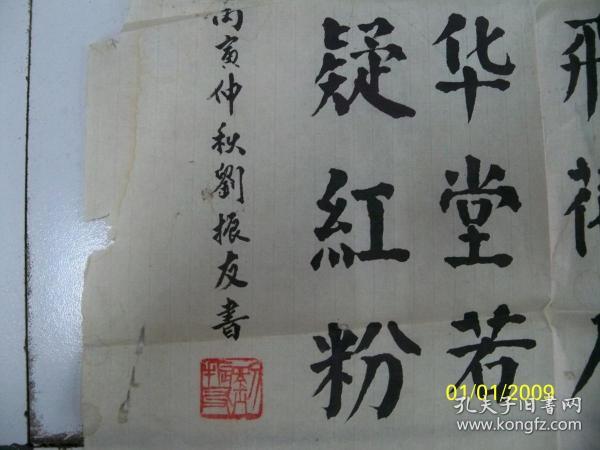 飛
华堂若
疑紅粉
丙寅仲秋劉振友書
01/01/2009
孔夫子旧书网
www.kongfz.com